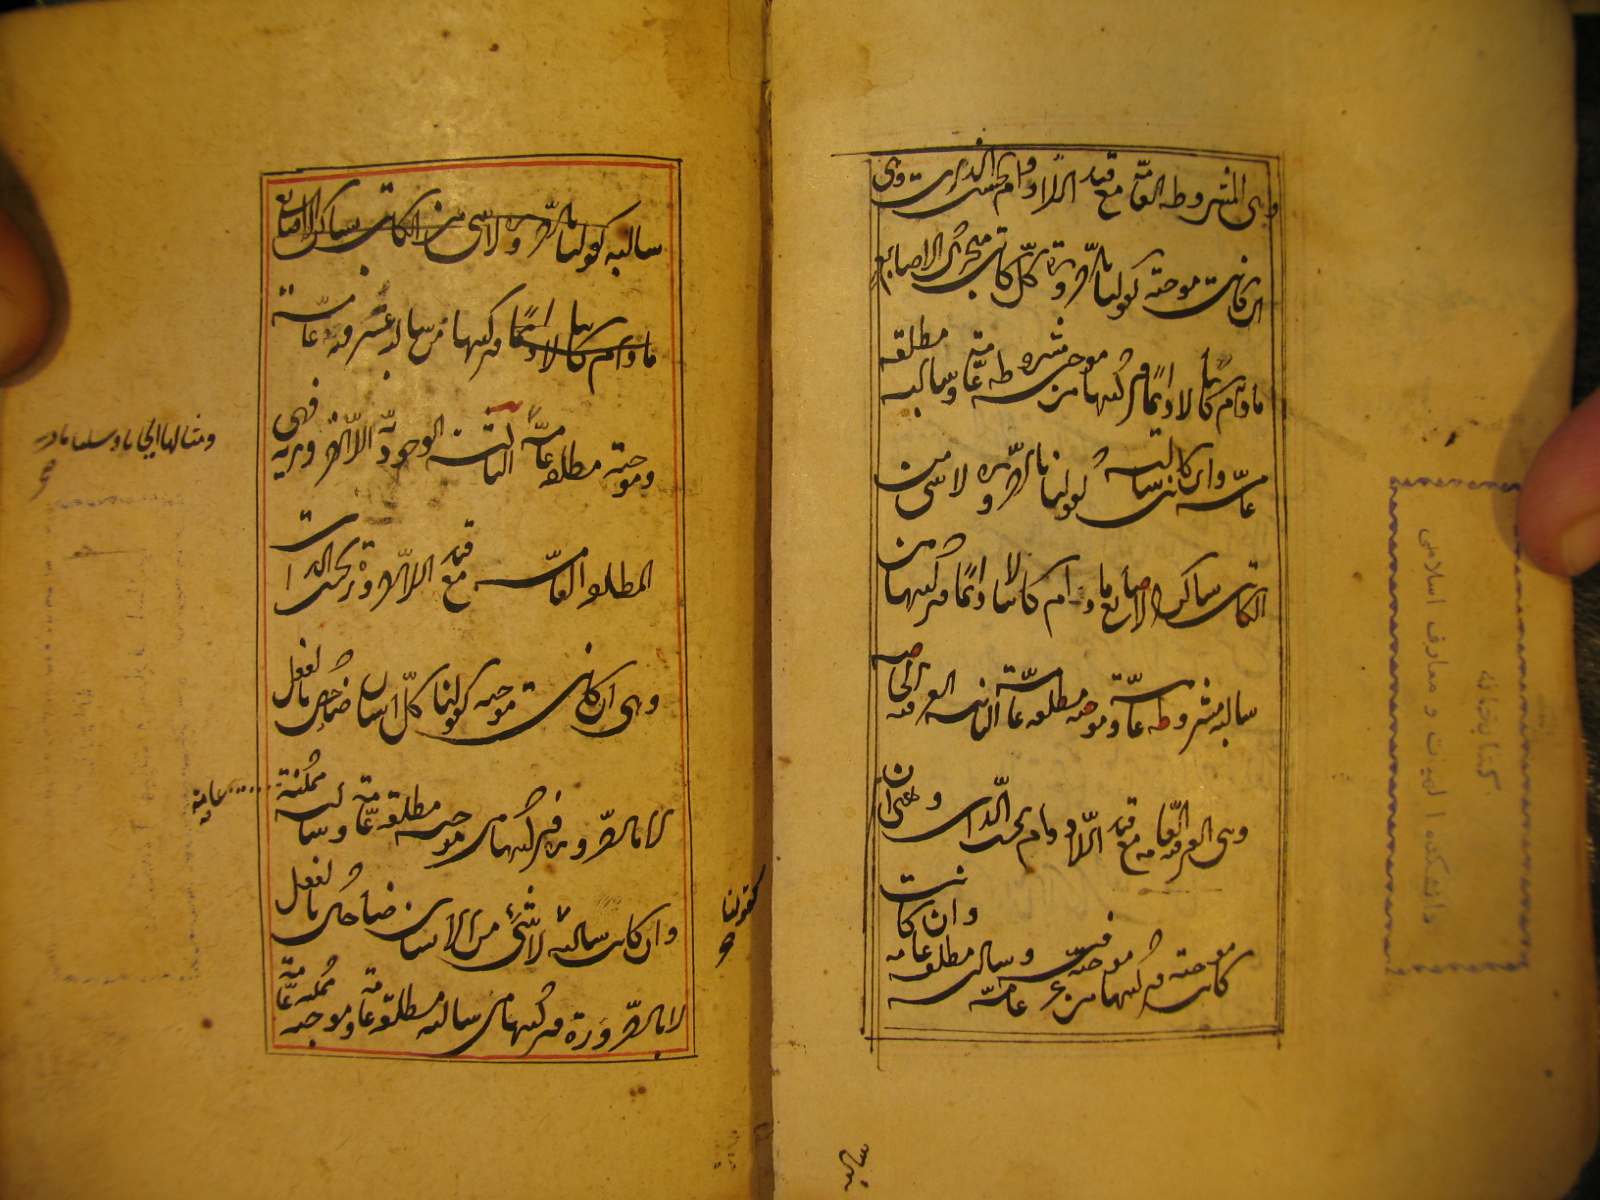 وهى المشروطه العامّة مع قيد اللادوام بحسب الذات وهى
ان كانت موجبة كقولنا بالضّرورة كلّ كاتب متحرك الاصابع
مادام كاتبا لا دائمًا فتركيبها من موجبة مشروطه عامّة وسالبه مطلقه
عامّه وان كانت سالبة كقولنا بالضّروره لا شى من
الكاتب ساكن الاصابع مادام كاتبا لا دائمًا فتركيبها من
سالبه مشروطه عامّة وموجبه مطلقه عامّة الثانيه العرفية الخاصه
وهى العرفيه العامّه مع قيد اللّادوام بحسب الذّات وهى ان
كانت موجبة فتركيبها من موجبّة عرفيّه عامّه وسالبه مطلقه عامه وان كانت
سالبه
سالبه كقولنا بالضّروره لا شى من الكاتب بساكن الاصابع
مادام كاتبا لا دائمًا فتركيبها من سالبة عرفيه عامّة
وموجبّة مطلقه عامّة الثالثة الوجوديّه اللّاضروريه فهى
المطلقه العامّه مع قيد اللاضرورة بحسب الذات
وهى ان كانت موجبه كقولنا كلّ انسان ضاحك بالفعل
لا بالضرورة فتركيبها من موجبه مطلقه عامّة وسالبه ممكنة
وان كانت سالبة لا شئ من الانسان ضاحك بالفعل
لا بالضّرورة فتركيبها من سالبه مطلقه عامة وموجبه ممكنه عامّة
ومثالها ايجابا وسلبا ما مر
عامه
كقولنا
كتابخانه
دانشكده الهيات و معارف اسلامى